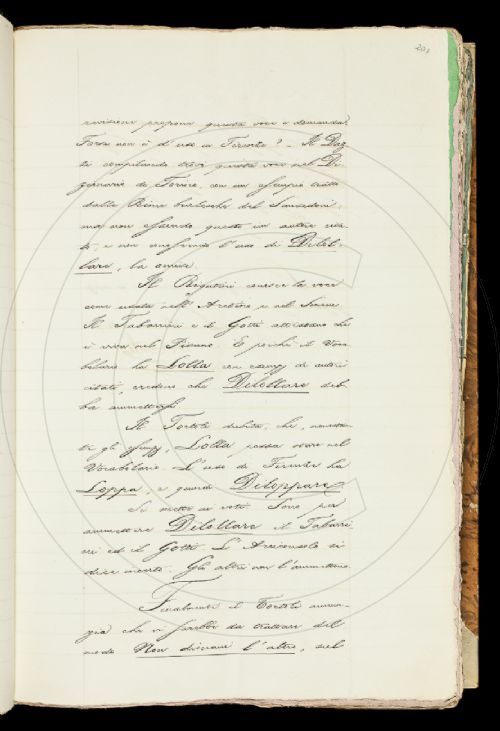 revisione propone questa voce e domanda:
Forse non è d'uso in Firenze? – Il Dag
la compilando trovò questa voce nel Di
zionario da Torere, con un esempio tratto
dalle Rime burlesche del Saccenti,
ma non essendo questo un autore cita
to, e non conoscendo l'uso di Dilol-
lare, la omise.
Il Bigutini conosce la voce
come usata nell'Aretino, e nel Senese
Il Tabarrini e il Gotti attestano che
è viva nel Pisano. E poichè il Voca
bolario ha Lolla con esempj di autori
citati, credono che Dilollare deb
ba ammettersi.
Il Tortoli dubita, che, nonostan
ti gli esempj, Lolla possa stare nel
Vocabolario. L'uso di Firenze ha
Loppa, e quindi Diloppare.
Si mette ai voti. Sono per
ammettere Dilollare il Tabarri
ni ed il Gotti. L'Arciconsolo si
dice incerto. Gli altri non l'ammettono.
Finalmente il Tortoli annun-
zia che vi sarebbe da trattare del
modo Non diciamo l'altro, nel